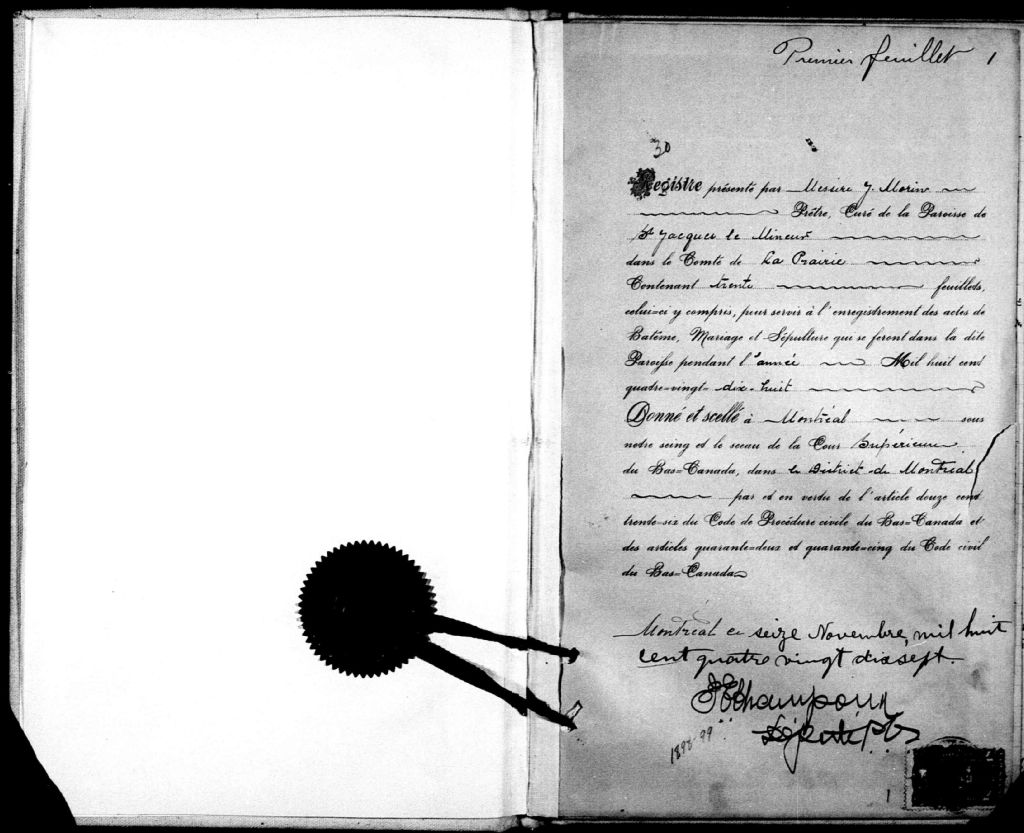 Premier feuillet 1
30
Registre présenté par Messire J. Morin
Prêtre, Curé de la Paroisse de
St Jacques le Mineur
dans le Comté de La Prairie
Contenant trente feuillets,
celui-ci y compris, pour servir à l'enregistrement des actes de
Batême, Mariage et Sépulture qui se feront dans la dite
Paroisse pendant l'année Mil huit cent
quatre-vingt-dix-huit
Donné et scellé à Montréal sous
notre seing et le sceau de la Cour Supérieure
du Bas-Canada, dans le District de Montréal
pas et en vertu de l'article douze cent
trente-six du Code de Procédure civile du Bas-Canada et
des articles quarante-deux et quarante-cinq du Code civil
du Bas-Canada
Montréal ce seize Novembre, mil huit
cent quatre vingt dix sept.
Député P C S
1898-99
1